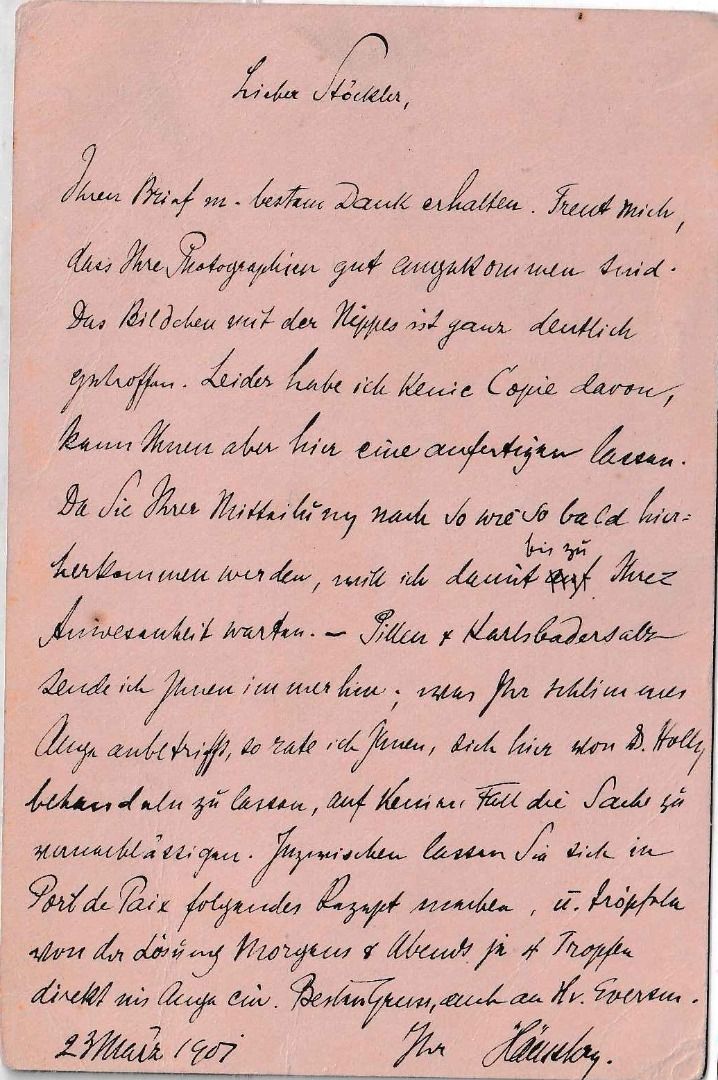 Lieber Stöckler,
Ihren Brief m. bestem Dank erhalten. Freut mich,
dass Ihre Photographien gut angekommen sind.
Das Bildchen mit der Nippes ist ganz deutlich
getroffen. Leider habe ich keine Copie davon,
kann Ihnen aber hier eine anfertigen lassen.
Da Sie Ihrer Mitteilung nach so wie so bald hier=
herkommen werden, will ich damit bis zu Ihrer
Anwesenheit warten. – Pillen & Karlsbadersalz
sende ich Ihnen immerhin; was Ihr schlimmes
Auge anbetrifft, so rate ich Ihnen, sich hier von D. Holly
behandeln zu lassen, auf keinen Fall die Sache zu
vernachlässigen. Inzwischen lassen Sie sich in
Port de Paix folgendes Rezept machen, u. tröpfeln
von der Lösung Morgens & Abends je 4 Tropfen
direkt ins Auge ein. Besten Gruss, auch an Hr. Eversen.
23 März 1901 Ihr